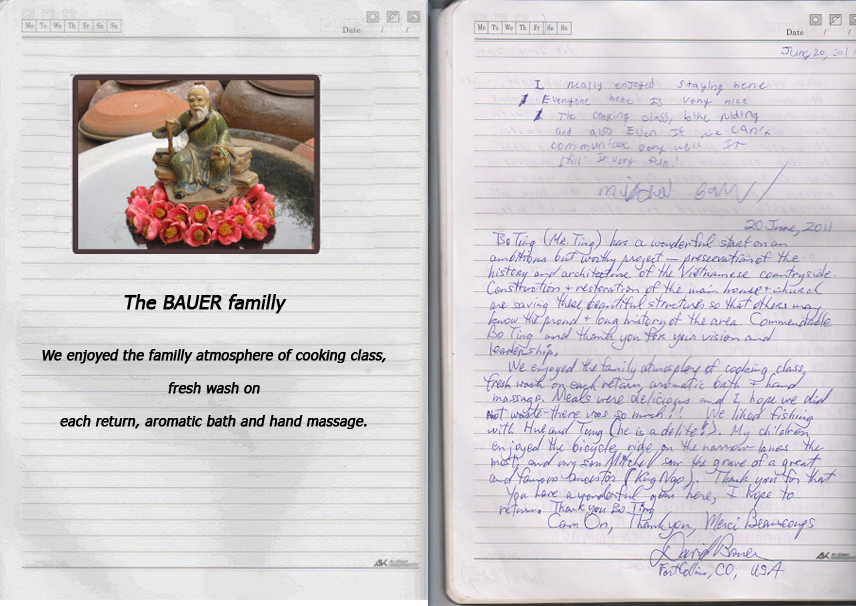 Mo Tu We Th Fr Sa Su
Date / /
The BAUER familly
We enjoyed the familly atmosphere of cooking class,
fresh wash on
each return, aromatic bath and hand massage.
Mo Tu We Th Fr Sa Su
Date / /
June, 20, 2011
I really enjoyed staying here
Everyone here is very nice
The cooking class, bike riding
and also Even If we can't
communicate very well It
still is very fun!
20 June, 2011
Bo Ting (Mr. Ting) has a wonderful start on an
ambitious but worthy project — preservation of the
history and architecture of the Vietnamese countryside.
Construction + restoration of the main house + church
are saving these beautiful structures so that others may
know the proud + long history of the area. Commendable
Bo Ting and thank you for your vision and
leadership.
We enjoyed the family atmosphere of cooking class,
fresh wash on each return, aromatic bath & hand
massage. Meals were delicious and I hope we did
not waste - there was so much!! We liked fishing
with Hue and Tung (he is a delite!). My children
enjoyed the bicycle ride on the narrow lanes the
most, and my son Mitchell saw the grave of a great
and famous ancestor (King Ngo). Thank you for that
You have a wonderful here, I hope to
return. Thank you Bo Ting
Cam On, Thank you, Merci Beaucoups
David Bauer
Fort Collins, CO, USA